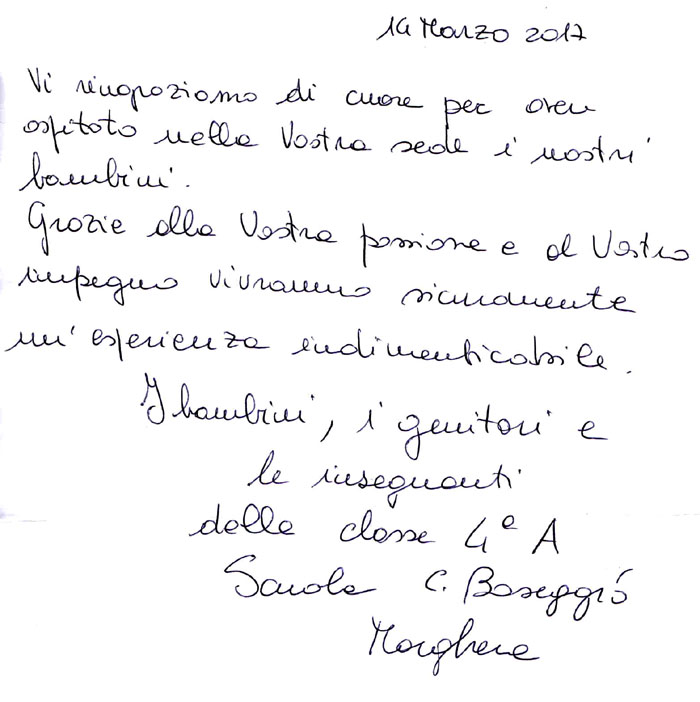 14 Marzo 2017
Vi ringraziamo di cuore per aver
ospitato nella Vostra sede i nostri
bambini.
Grazie alla Vostra passione e al Vostro
impegno vivranno sicuramente
un' esperienza indimenticabile.
I bambini, i genitori e
le insegnanti
della classe 4ª A
Scuola C. Baseggio
Marghera